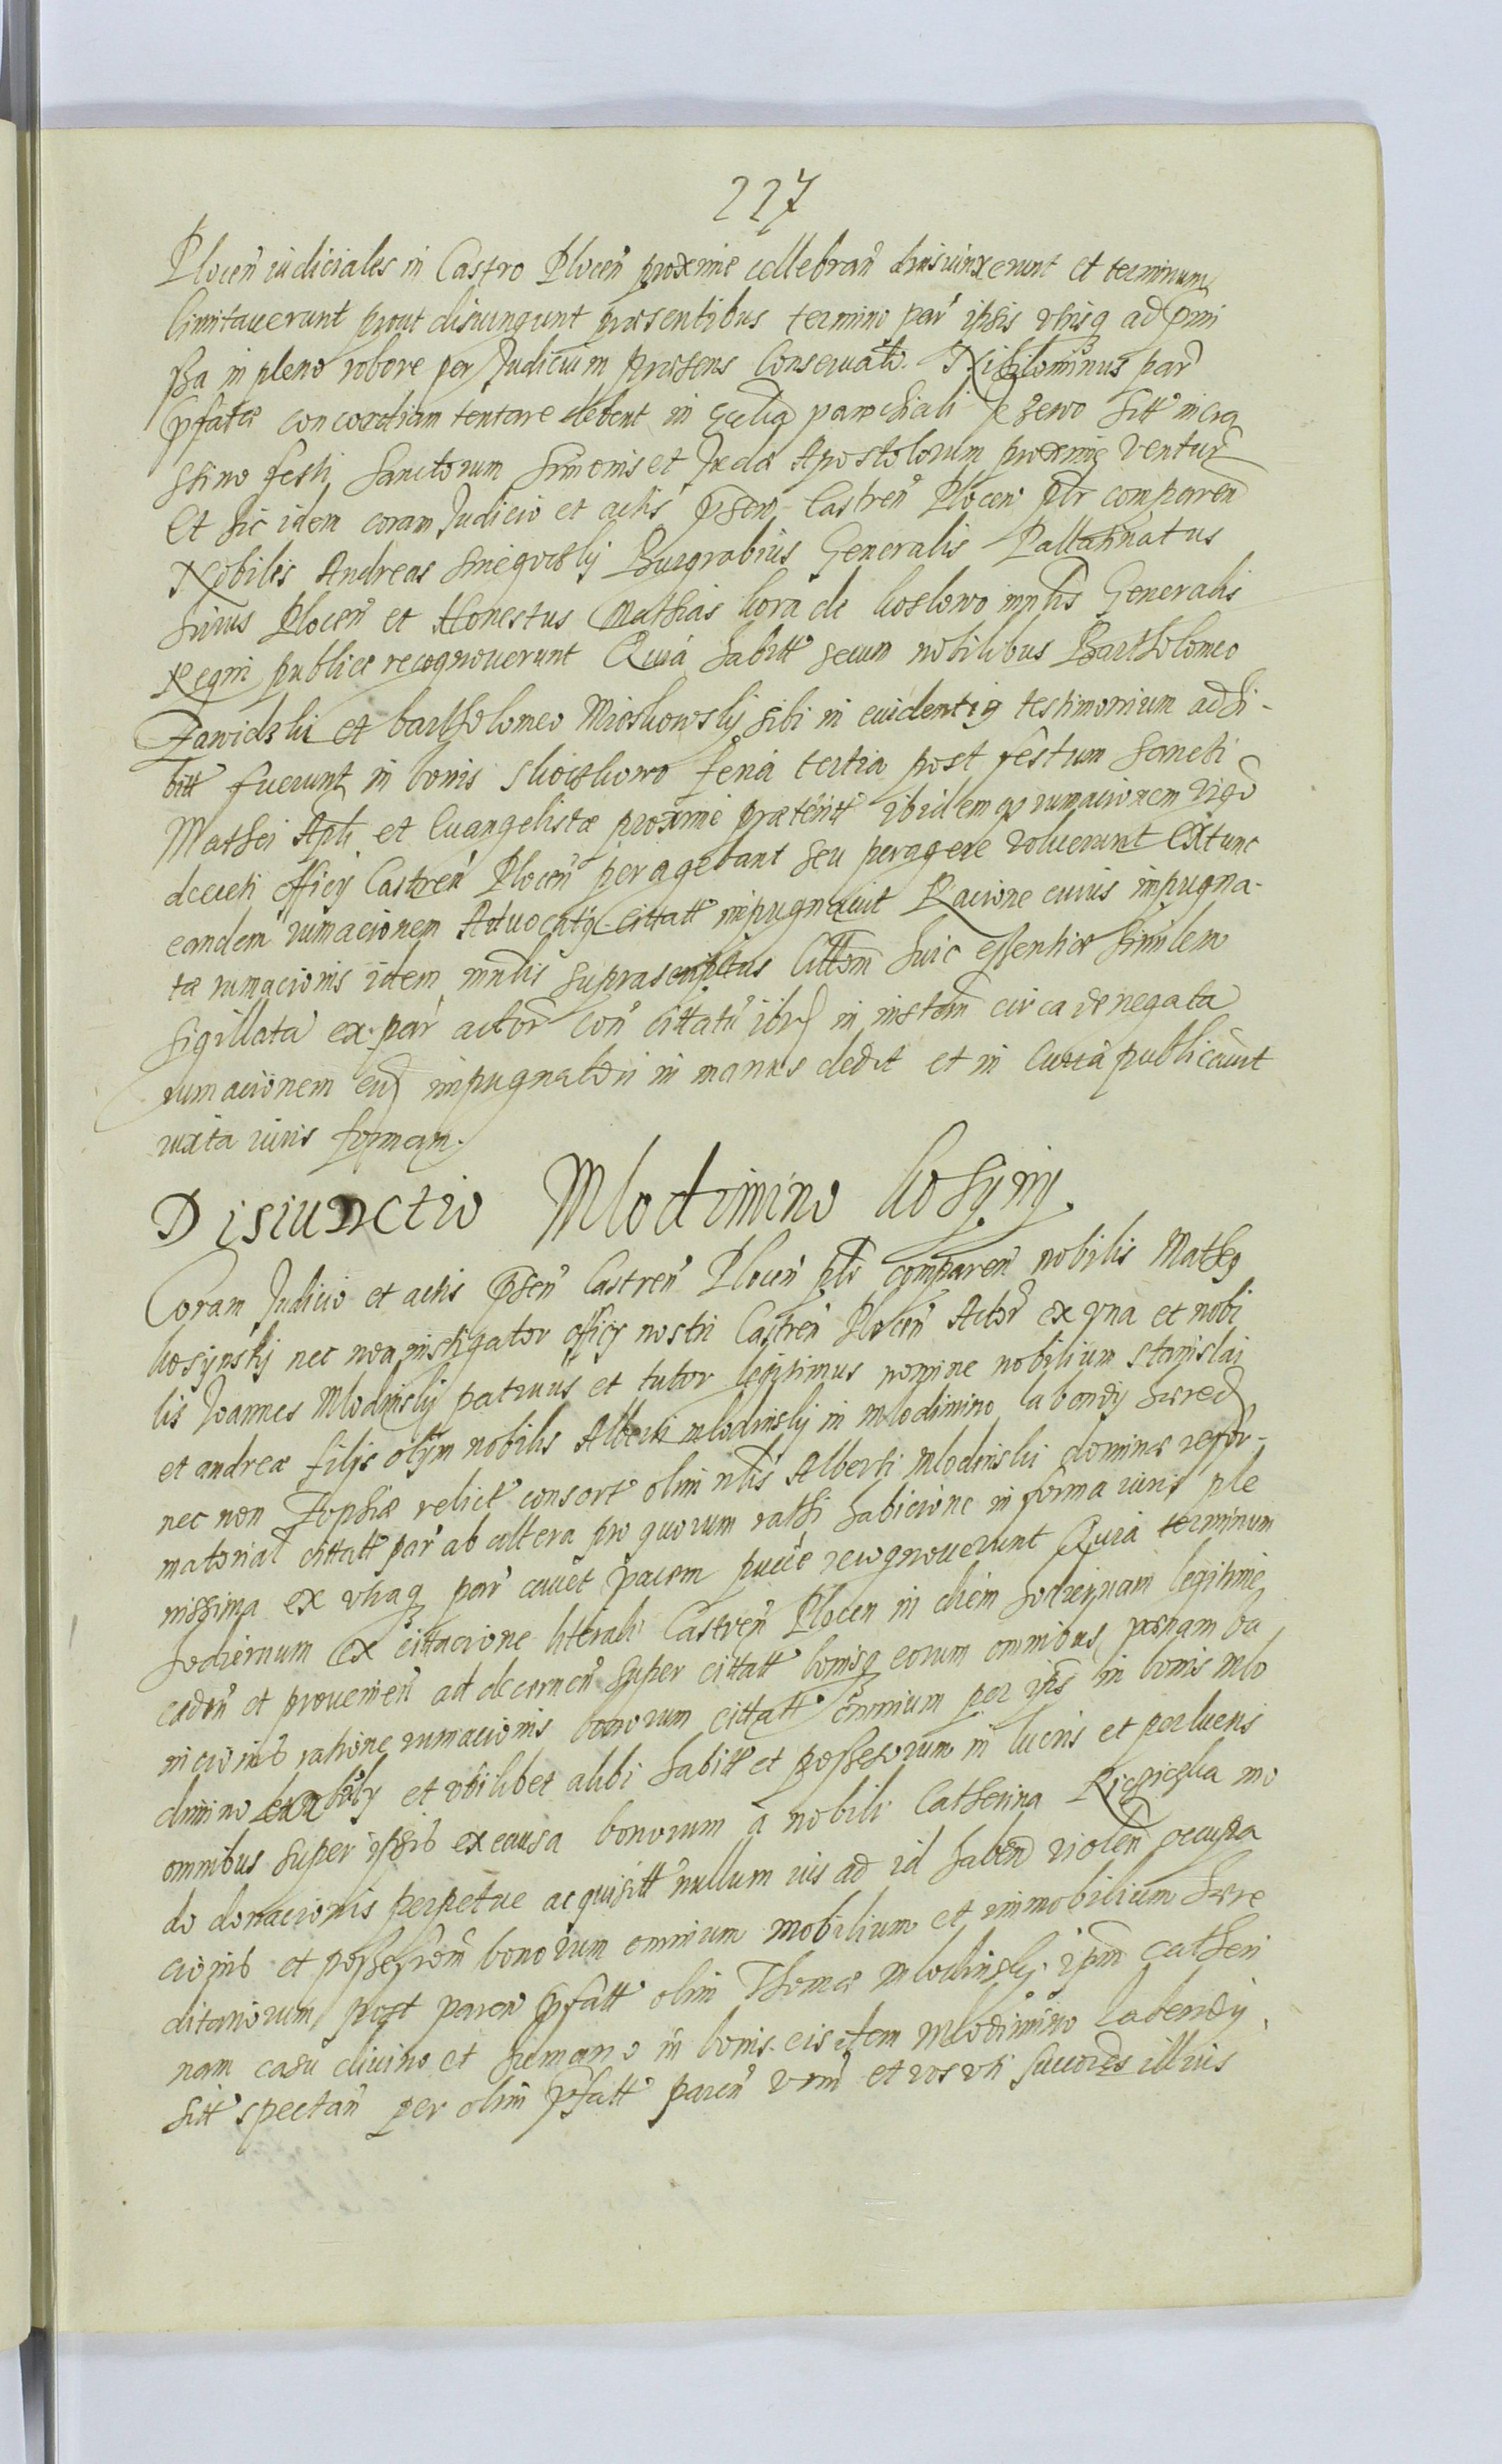 227
Plocen̄ iudiciales in Castro Plocen̄ proxime cellebran̄ disiunxerunt et terminum
limitauerunt prout disiungunt præsentibus termino par̄ ipsis vtrisq ad pmi
ssa in pleno robore per Judicium præsens Conseruato. Nihilominus par̄
pfatæ concordiam tentare debent in Ecclia parochiali Jezewo sitt in cra
stino festi Sanctorum Simonis et Judæ Apostolorum proxime ventur̄
Et sic idem coram Judicio et actis psen Castren̄ Plocen ptr comparen̄
Nobiles Andreas Sniegoczkij Burgrabius Generalis Pallatinatus
huius Plocen̄ et Honestus Mathias kora de koslowo mptis Generalis
Regni publice recognouerunt Quia habitt secum nobilibus Bartholomeo
Zawidzki et bartholomeo Mioskowskij sibi in euidentiq testimonium adhi-
bitt fuerunt in bonis Skoczkowo feria tertia post festum Sancti
Mathei Apli et Euangelistæ proxime præteritt ibidemq rumacionem vigo
decreti officij Castren̄ Plocen̄ peragebant seu peragere voluerunt Extunc
eandem rumacionem Aduocatq cittatt impugnauit Racione cuius impugna-
tæ rumacionis idem mnlis suprascriptus Littem huic essentiæ similem
sigillata ex par̄ actor̄ con̄ cittatū ibid in instan̄ circa denegata
rumacionem eid impugnatori in manus dedit et in Curia publicauit
iuxta iuris formam.
Disiunctio Mlodimino kosijnij.
Coram Judicio et actis psen̄ Castren̄ Plocen̄ ptr comparen̄ nobilis Mathg
kosijnskij nec non instigator officij nostri Castren̄ Plocen̄ Actor̄ ex vna et nobi
lis Joannes Mlodinskij patruus et tutor legitimus nomine nobilium Stanislai
et andreæ filijs olim nobilis Alberti mlodinskij in mlodimino labendij hæred
nec non Zophiæ relict̄ consort̄ olim nlis Alberti Mlodinski dominæ refor-
matorial cittatt par̄ ab altera pro quorum rathi habicione in forma iuris ple
nissima ex vtraq par̄ cauet pacem pucce recognouerunt Quia terminum
hodiernum ex cittacione literali Castren̄ Plocen in diem hodiernam legitime
caden̄ et prouenien̄ ad decernen̄ super cittatt bonisq eorum omnibus pœnam ba
nicionis ratione rumacionis bonorum cittatt omnium per ipis in bonis mlo
dimino et vbilibet alibi habitt et possesorum in lucris et perlucris
omnibus super ipsis ex causa bonorum a nobili Catherina mo
do donacionis perpetue acquisitt nullum ius ad id haben̄ violen̄ occupa
cionis et possesion̄ bonorum omnium mobilium et immobilium hære
ditariorum post paren̄ pfatt olim Thomæ mlodinskij ipm Catheri
nam casu diuino et humano in bonis eisdem mlodimino labendij
sitt spectan̄ per olim pfatt paren̄ vrm̄ et vos vti succores illius